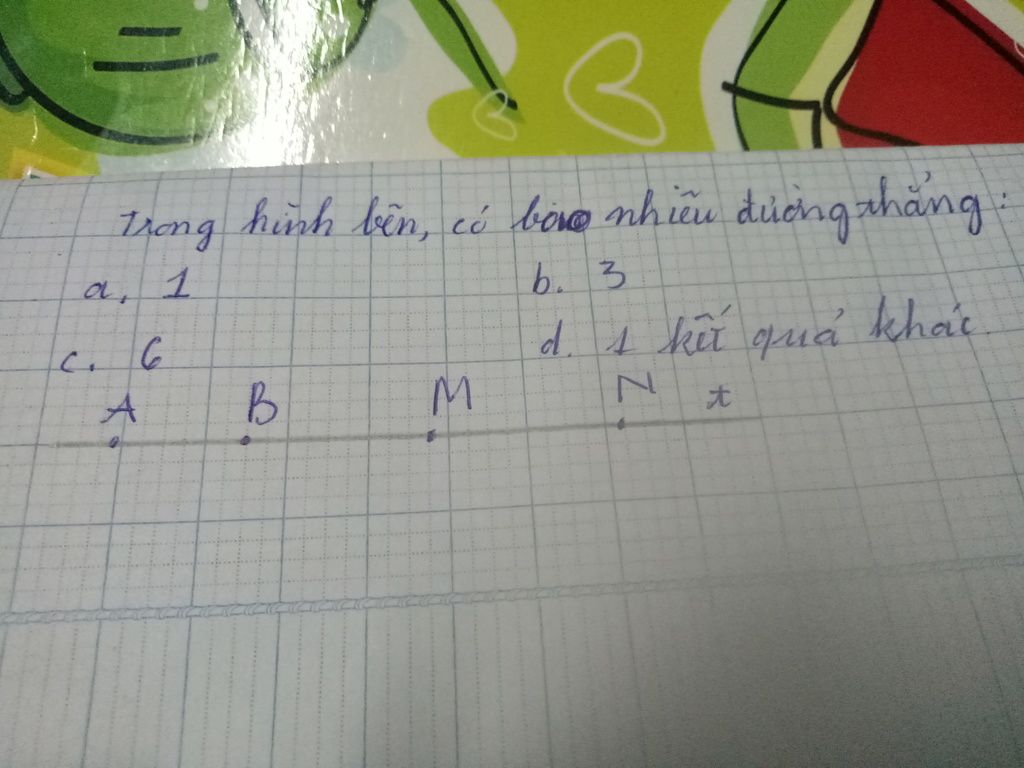 Trong hình bên, có bao nhiêu đường thẳng:
a. 1 b. 3
c. 6 d. 1 kết quả khác
A B M N x